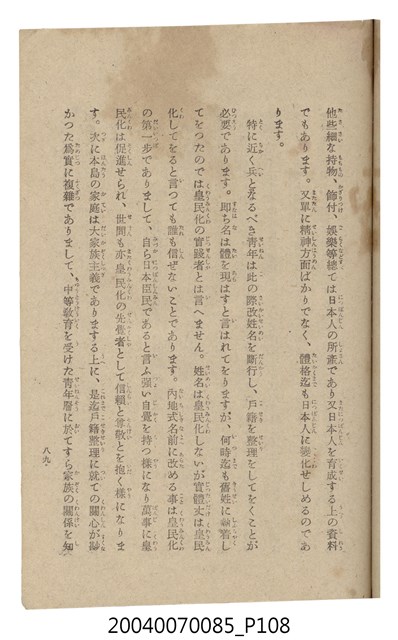 他些細な持物、飾付、娛樂等總ては日本人の所產であり又日本人を育成する上の資料
でもあります。又單に精神方面ばかりでなく、體格迄も日本人に變化せしめるのであ
ります。
特に近く兵となるべき青年は此の際改姓名を斷行し、戶籍を整理をしてをくことが
必要であります。卽ち名は體を現はすと言はれてをりますが、何時迄も舊姓に執着し
てをつたのでは皇民化の實踐者とは言へません。姓名は皇民化しないが實體丈は皇民
化してをると言つても誰も信ぜないことであります。內地式名前に改める事は皇民化
の第一步でありまして、自ら日本臣民であると言ふ强い自覺を持つ樣になり萬事に皇
民化は促進せられ、世間も亦皇民化の先覺者として信賴と尊敬とを抱く樣になりま
す。次に本島の家庭は大家族主義でありまする上に、是迄戶籍整理に就ての關心が尠
かつた爲實に複雜でありまして、中等敎育を受けた靑年層に於てすら家族の關係を知
八九
20040070085_P108